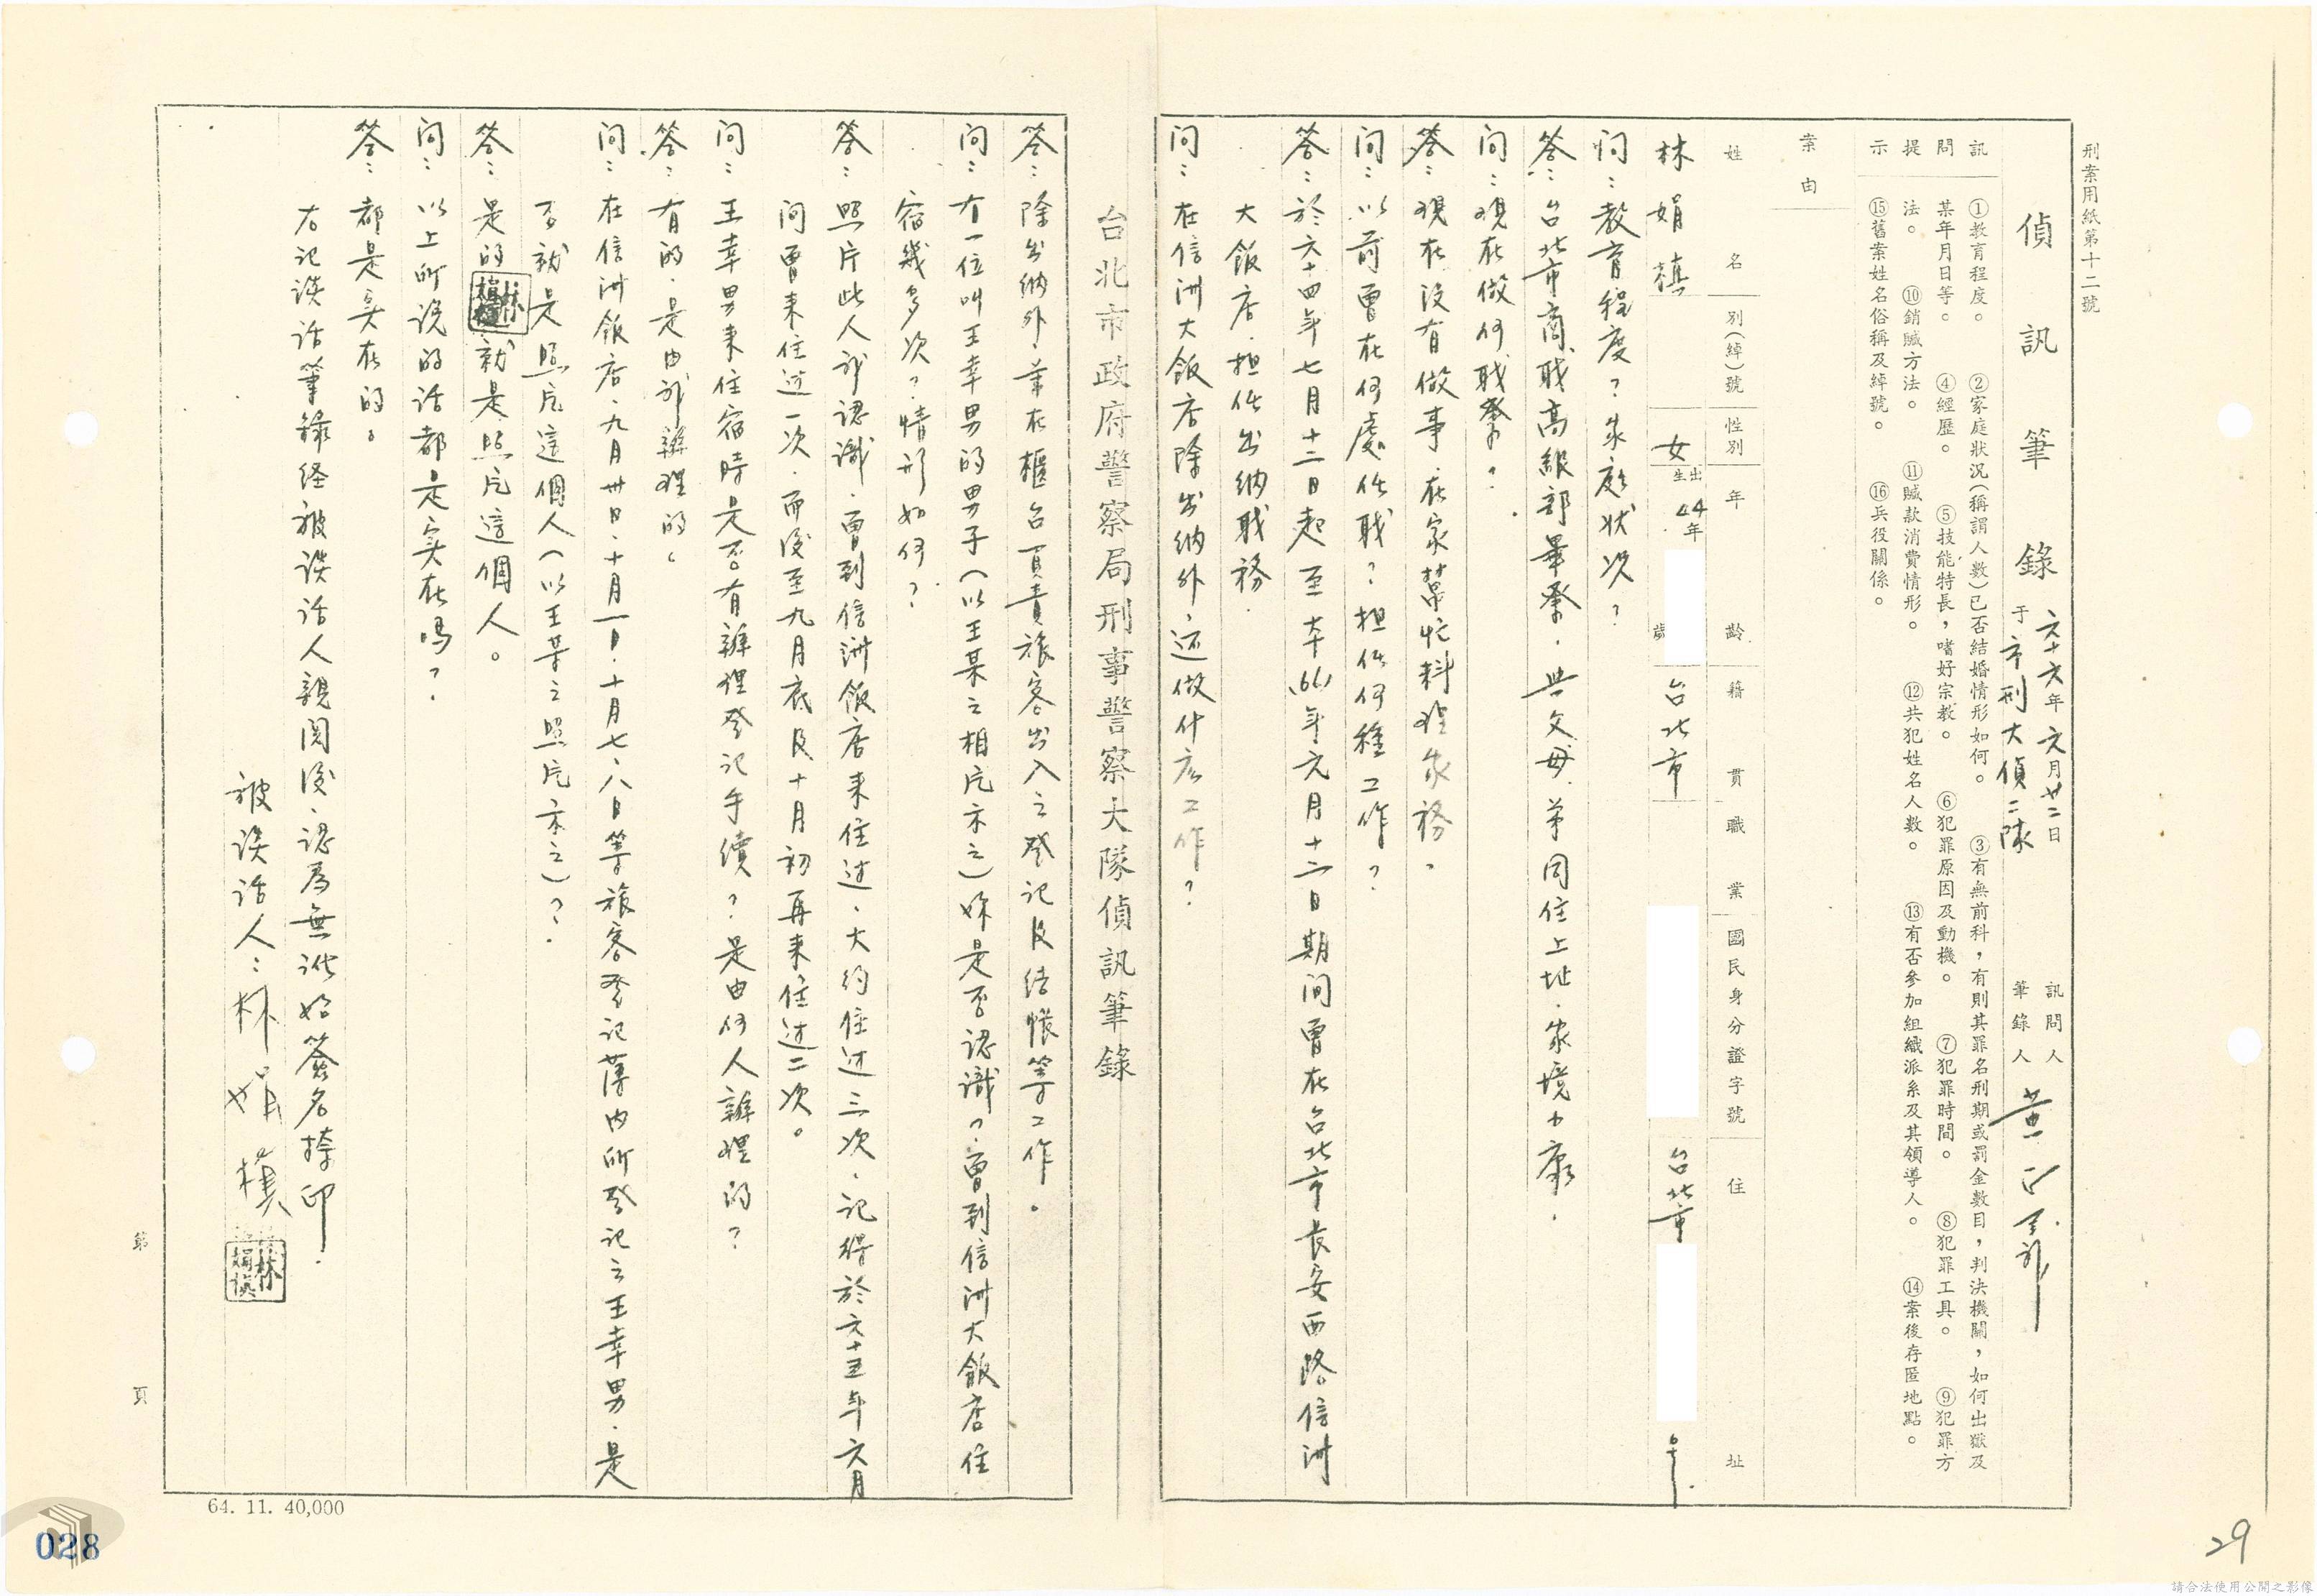 刑案用紙第十二號
偵訊筆錄 六十六年六月廿二日 于市刑大偵二隊 訊問人 筆錄人 黃
訊問提示
①教育程度。 ②家庭狀況(稱謂人數)已否結婚情形如何。 ③有無前科,有則其罪名刑期或罰金數目,判決機關,如何出獄及
某年月日等。 ④經歷。 ⑤技能特長,嗜好宗教。 ⑥犯罪原因及動機。 ⑦犯罪時間。 ⑧犯罪工具。 ⑨犯罪方
法。 ⑩銷贓方法。 ⑪贓款消費情形。 ⑫共犯姓名人數。 ⑬有否參加組織派系及其領導人。 ⑭案後存匿地點。
⑮舊案姓名俗稱及綽號。 ⑯兵役關係。
案由
姓名 別(綽)號 性別 年齡 籍貫 職業 國民身分證字號 住址
林娟禛 女 出生44年 歲 台北市 台北市
问:教育程度?家庭状况?
答:台北市商职高級部畢業.與父母.弟同住上址.家境小康.
问:現在做何職業?
答:現在沒有做事.在家幫忙料理家務.
问:以前曾在何處任職?担任何種工作?
答:於六十四年七月十二日起至六十(66)年元月十二日期间曾在台北市長安西路信洲
大飯店.担任出纳职務.
问:在信洲大飯店除出纳外.还做什么工作?
台北市政府警察局刑事警察大隊偵訊筆錄
答:除出纳外.業在櫃台負責旅客出入之登记及结帳等工作。
问:有一位叫王幸男的男子(以王某之相片示之)妳是否認識?曾到信洲大飯店住
宿幾多次?情形如何?
答:照片此人我認識.曾到信洲飯店来住过.大約住过三次.记得於六十五年六月
间曾来住过一次.而後至九月底及十月初再来住过二次。
问:王幸男来住宿時是否有辦理登记手續?是由何人辦理的?
答:有的.是由我辦理的。
问:在信洲飯店.九月卅日.十月一日.十月七、八日等旅客登记薄内所登记之王幸男.是
否就是照片這個人(以王某之照片示之)?
答:是的就是照片這個人。
问:以上所説的话都是实在吗?
答:都是实在的。
右记谈话筆錄经被谈话人親閱後.認為無訛始簽名捺印.
被谈话人:林娟禛
林娟禛
第 頁
64. 11. 40,000
028
29
請合法使用公開之影像